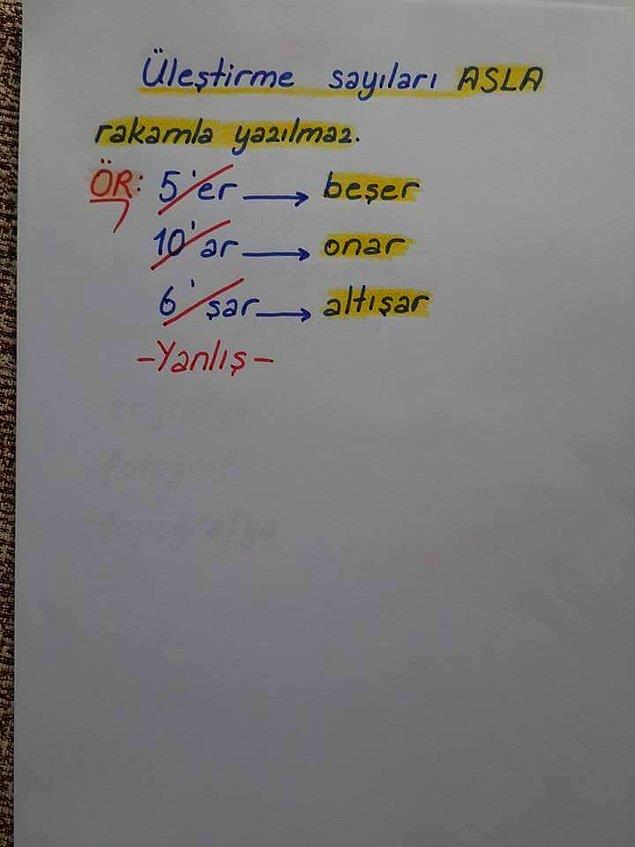 Üleştirme sayıları ASLA
rakamla yazılmaz.
ÖR: 5'er → beşer
10'ar → onar
6'şar → altışar
-Yanlış-
fotoğraf
topoğrafya